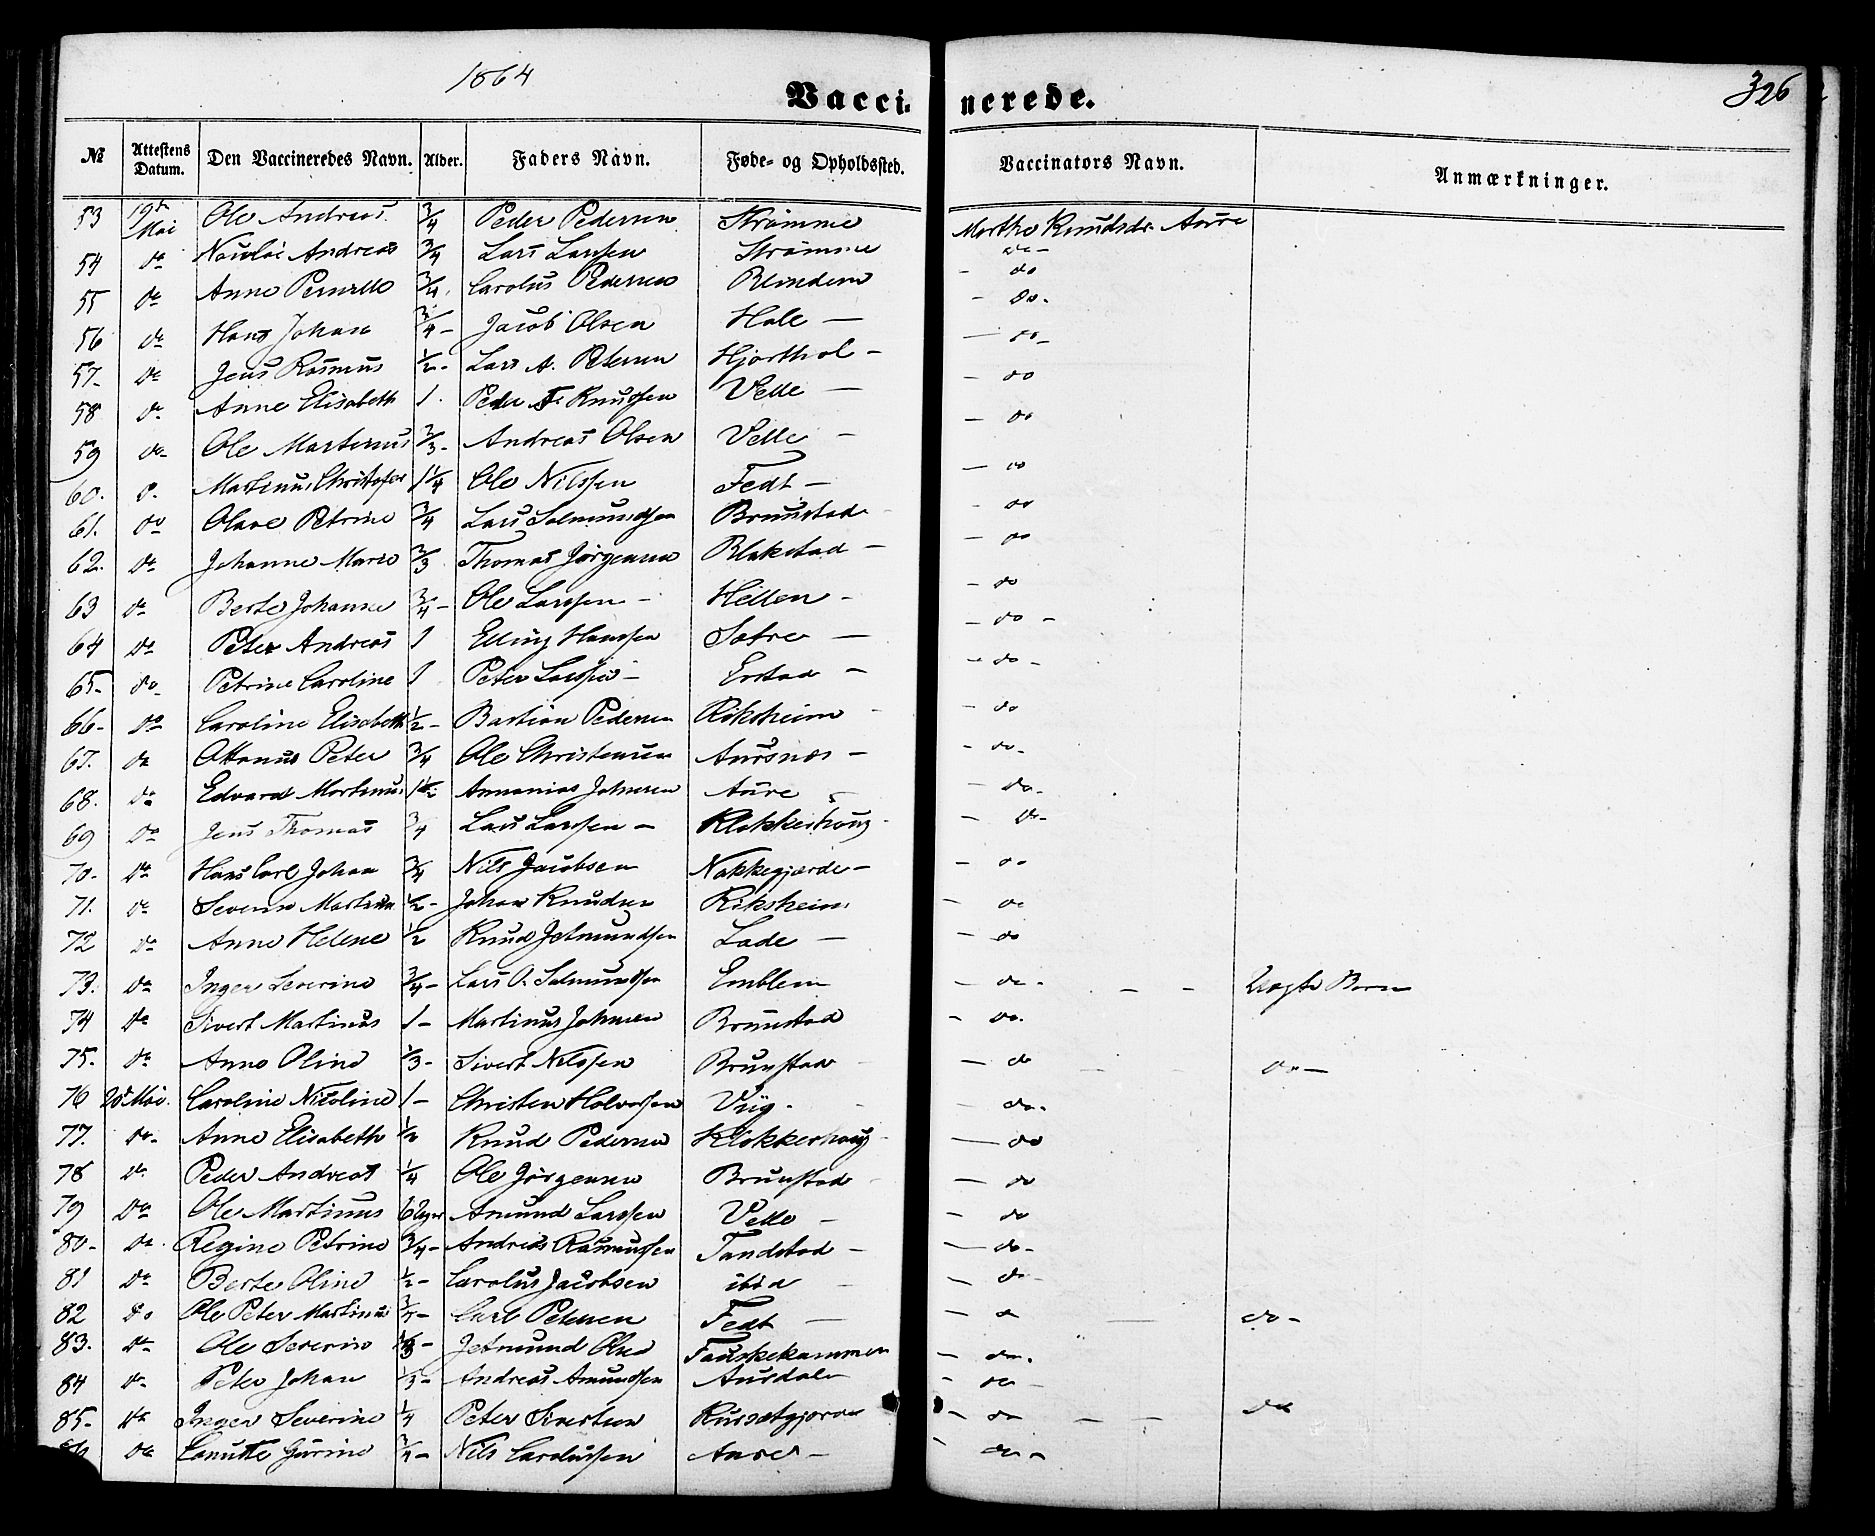 1864
326
Vaccinerede.
№ Attestens Datum. Den Vaccineredes Navn. Alder. Faders Navn. Føde- og Opholdssted. Vaccinators Navn. Anmærkninger.
53 19de Mai Ole Andreas. 3/4 Peder Pedersen Strømme Marthe Knudsdr Aure
54 do Nicolai Andreas 3/4 Lars Larssen Strømme do-
55 do Anne Pernille 3/4. Carolus Pedersen Blindem - do
56 do Hans Johan 3/4- Jacob Olsen Hole - - do.
57- do Jens Rasmus 1/2- Lars A. Petersen Hjorthol - - do-
58 do- Anne Elisabeth 1. Peder Knudsen Velle - - do
59 do- Ole Martinus 2/3- Andreas Olsen Velle - - do
60. d. Martinus Christofer 1 1/4 Ole Nilssen Fedt - - do
61. do Olave Petrine 3/4 Lars Salmundsen Brunstad - - do
62. do Johanne Marie 2/3 Thomas Jørgensen Blakstad - - do
63 do Berte Johanne 3/4- Ole Larssen - Hellen - - do
64 do Peter Andreas 1 Elling Hanssen Sætre - - do -
65- do- Petrine Caroline 1 Peter Larssen - Erstad - - do -
66- do Caroline Elisabeth 1/2- Bastian Pedersen Riksheim - - do
67. do Ottonus Peter 3/4 Ole Christensen Aursnes - - do-
68. do Edvard Martinus 1 1/2 Annanias Johnsen Aure - - do-
69 do Jens Thomas 3/4 Lars Larssen - Klokkerhoug - - do-
70- do Hans Carl Johan 3/4 Nils Jacobsen Nakkegjærde - - do
71. do Severin Martinus 1/2- Johan Knudsen Riksheim - do
72 do Anne Helene 1/2 Knud Jetmundsen Lade - - do
73. do Inger Severine 3/4- Lars O. Salmundsen Emblem - do - - - Uægte Barn
74 do Sivert Martinus 1- Martinus Johnsen Brunstad - do.
75. do Anne Oline 1/3- Sivert Nilssen Brunstad - - do - - do -
76 20de Mai. Caroline Nicoline 1- Christen Halvorsen Viig - - do-
77. do- Anne Elisabeth 1/2 Knud Pedersen Klokkerhoug - - do
78 do Peder Andreas 1/4 Ole Jørgensen Brunstad - - do
79 do Ole Martinus 6 Uger Amund Larssen Velle - - do
80- do. Regine Petrine 3/4- Andreas Rasmussen Tandstad - - do-
81 do Berte Oline 1/2- Carolus Jacobsen ibid - - do-
82 do Ole Peter Martinus 3/4- Carl Petersen Fedt - - do - do -
83. do Ole Severin - Jetmund Olsen Fauskekammen - do.
84 do- Peter Johan 1/3- Andreas Amundsen Aursdal - - do -
85- do Inger Severine 1/4 Peter Sivertsen - do - - do
do Canutte Gurine 3/4- Nils Carolussen Aure - - do -